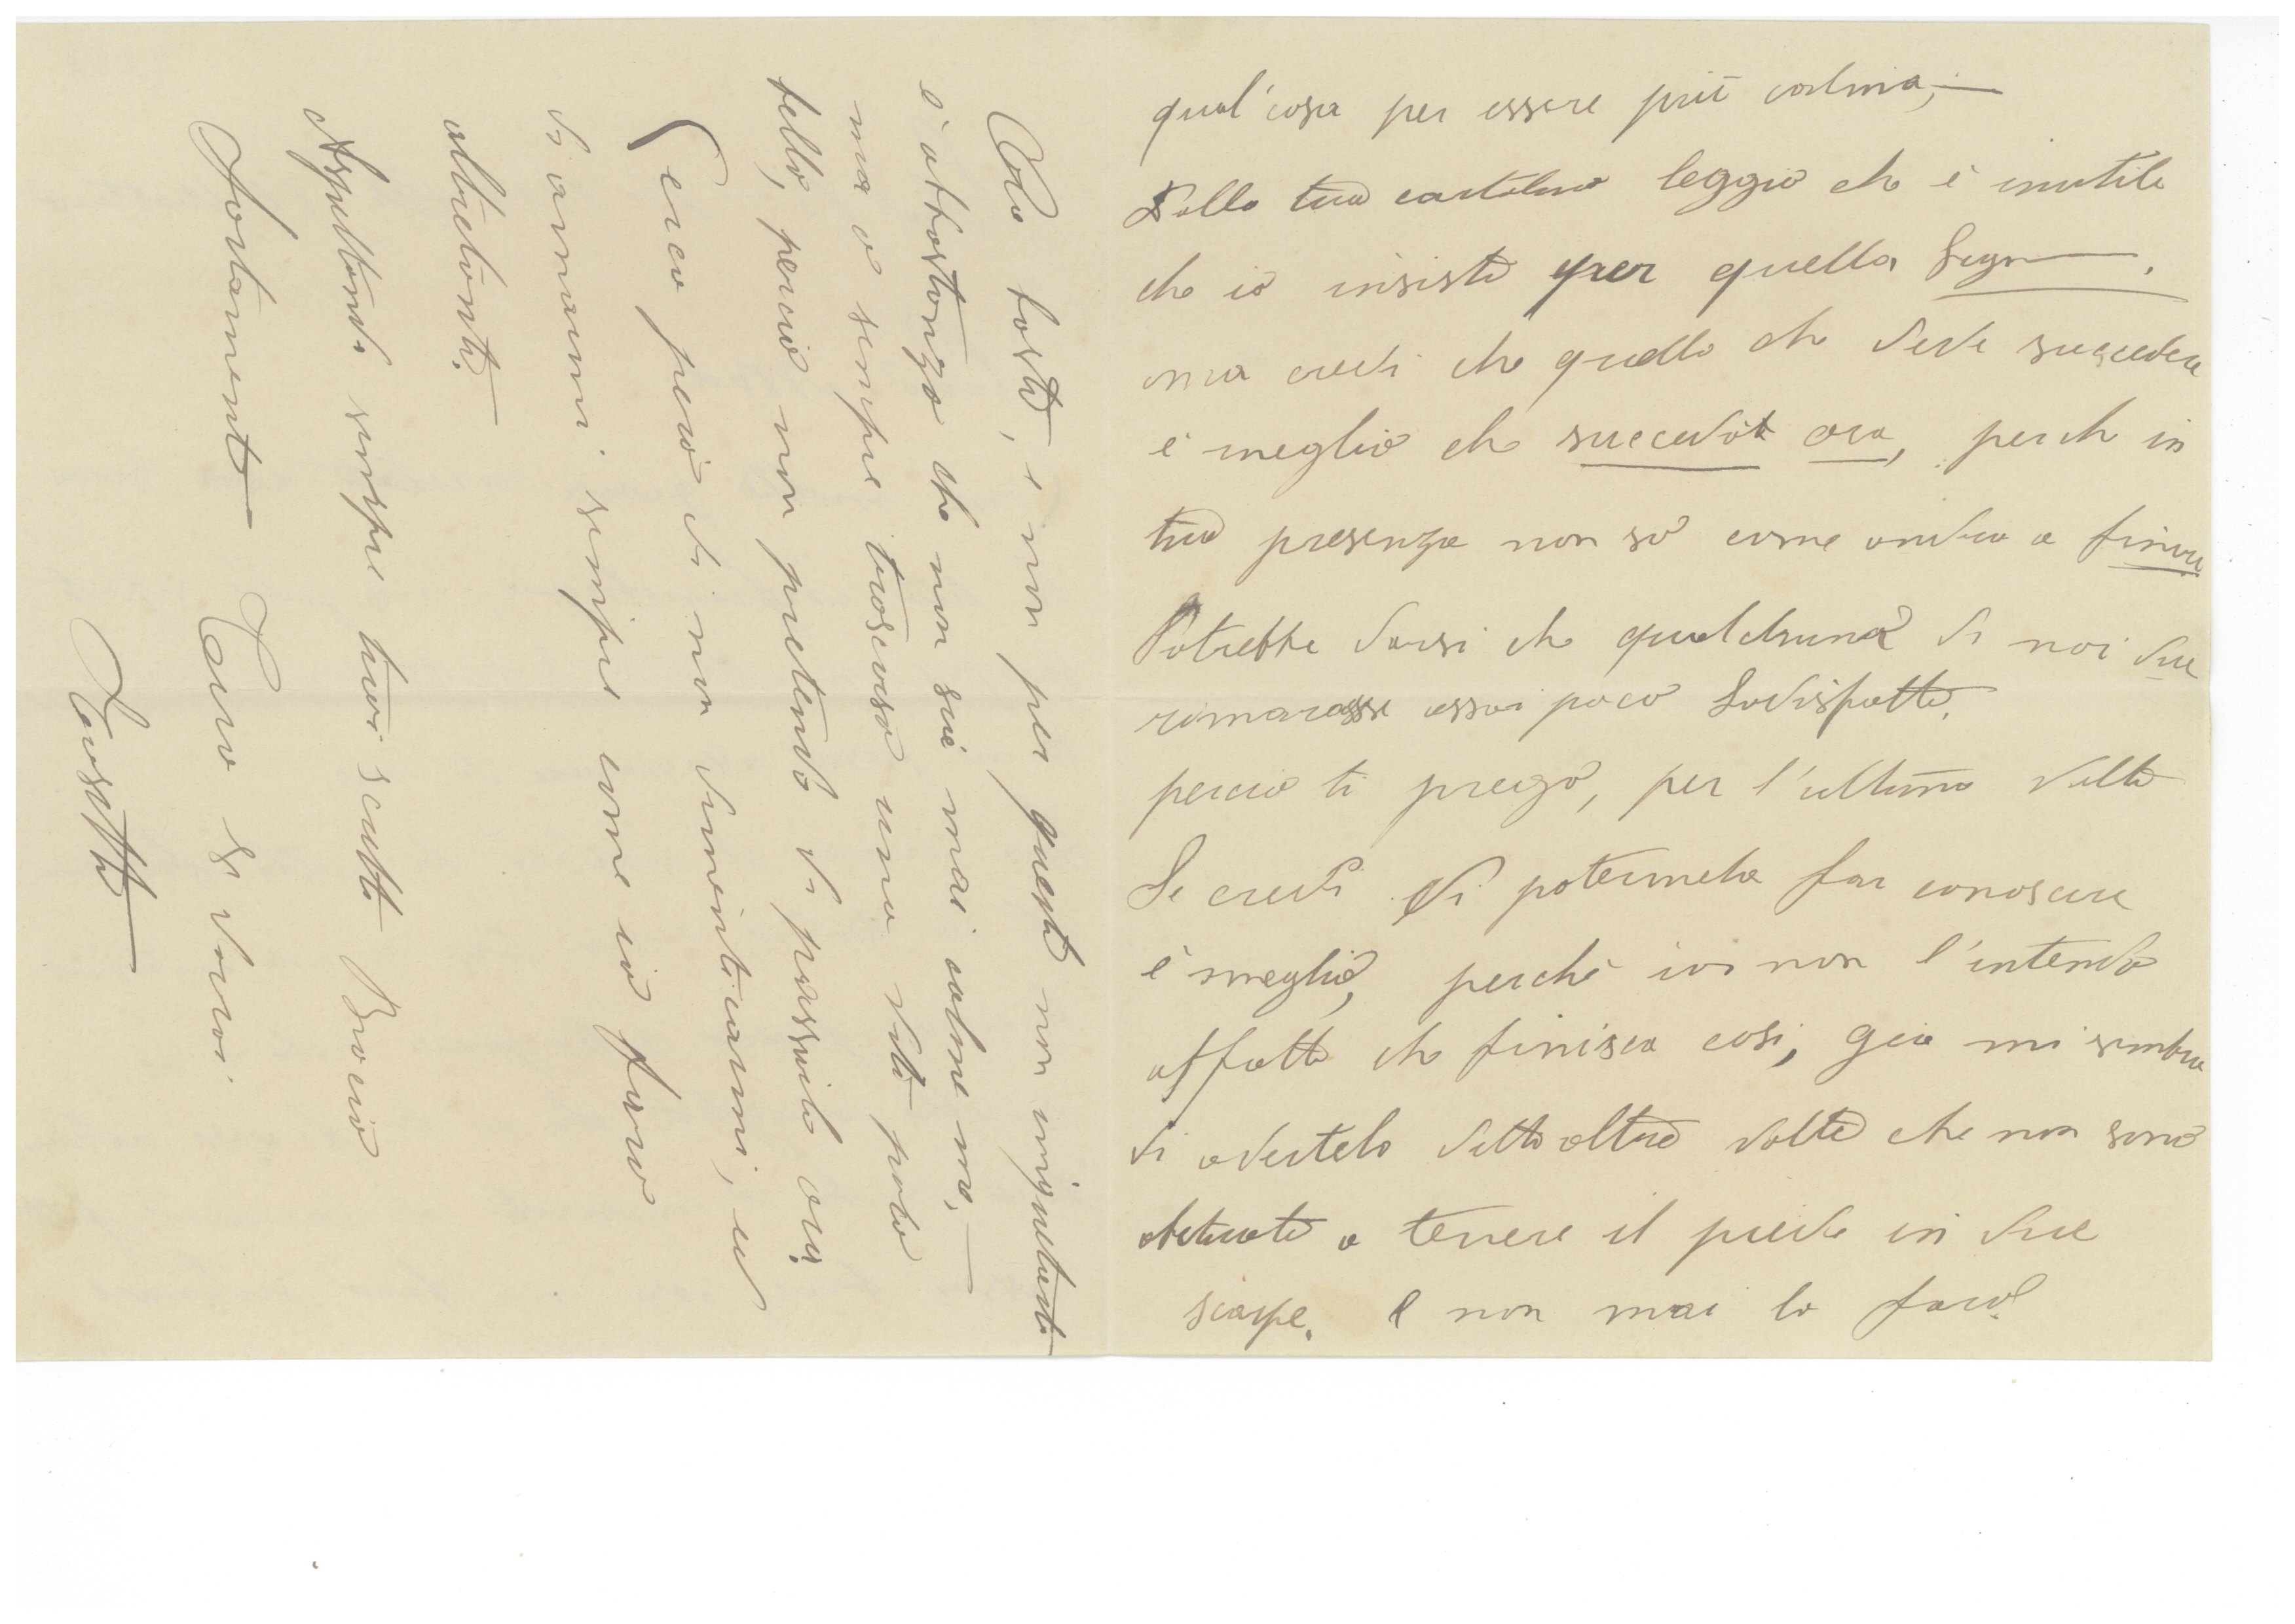 qual'cosa per essere più calma, —
Dalla tua cartolina leggio che è inutile
che io insisto per quella Sign——.
ma credi che quello che deve succedere
è meglio che succeda ora, perche in
tua presenza non so come andra a finire
Potrebbe darsi che qualcheuna di noi due
rimarasse assai poco Sodisfatta.
percio ti prego, per l'ultima volta
Se credi di potermela far conoscere
è meglio, perchè io non l'intendo
affatto che finisca cosi, gia mi sembra
di avertelo detto altre volte che non sono
abituata a tenere il piede in due
scarpe. e non mai lo farò.
Colo basta, e non per questo non inquietarti
è abbastanza che non sie mai calme me, —
ma o sempre trascorso una vita poco
bella, percio non pretendo di passarla ora.
Cerco pero di non dimenticarmi, ed
di amarmi. sempre come io faro
altretanto.
Aspettando sempre tuoi scritti Bacio
fortamente Caro se vorai
Rosetta